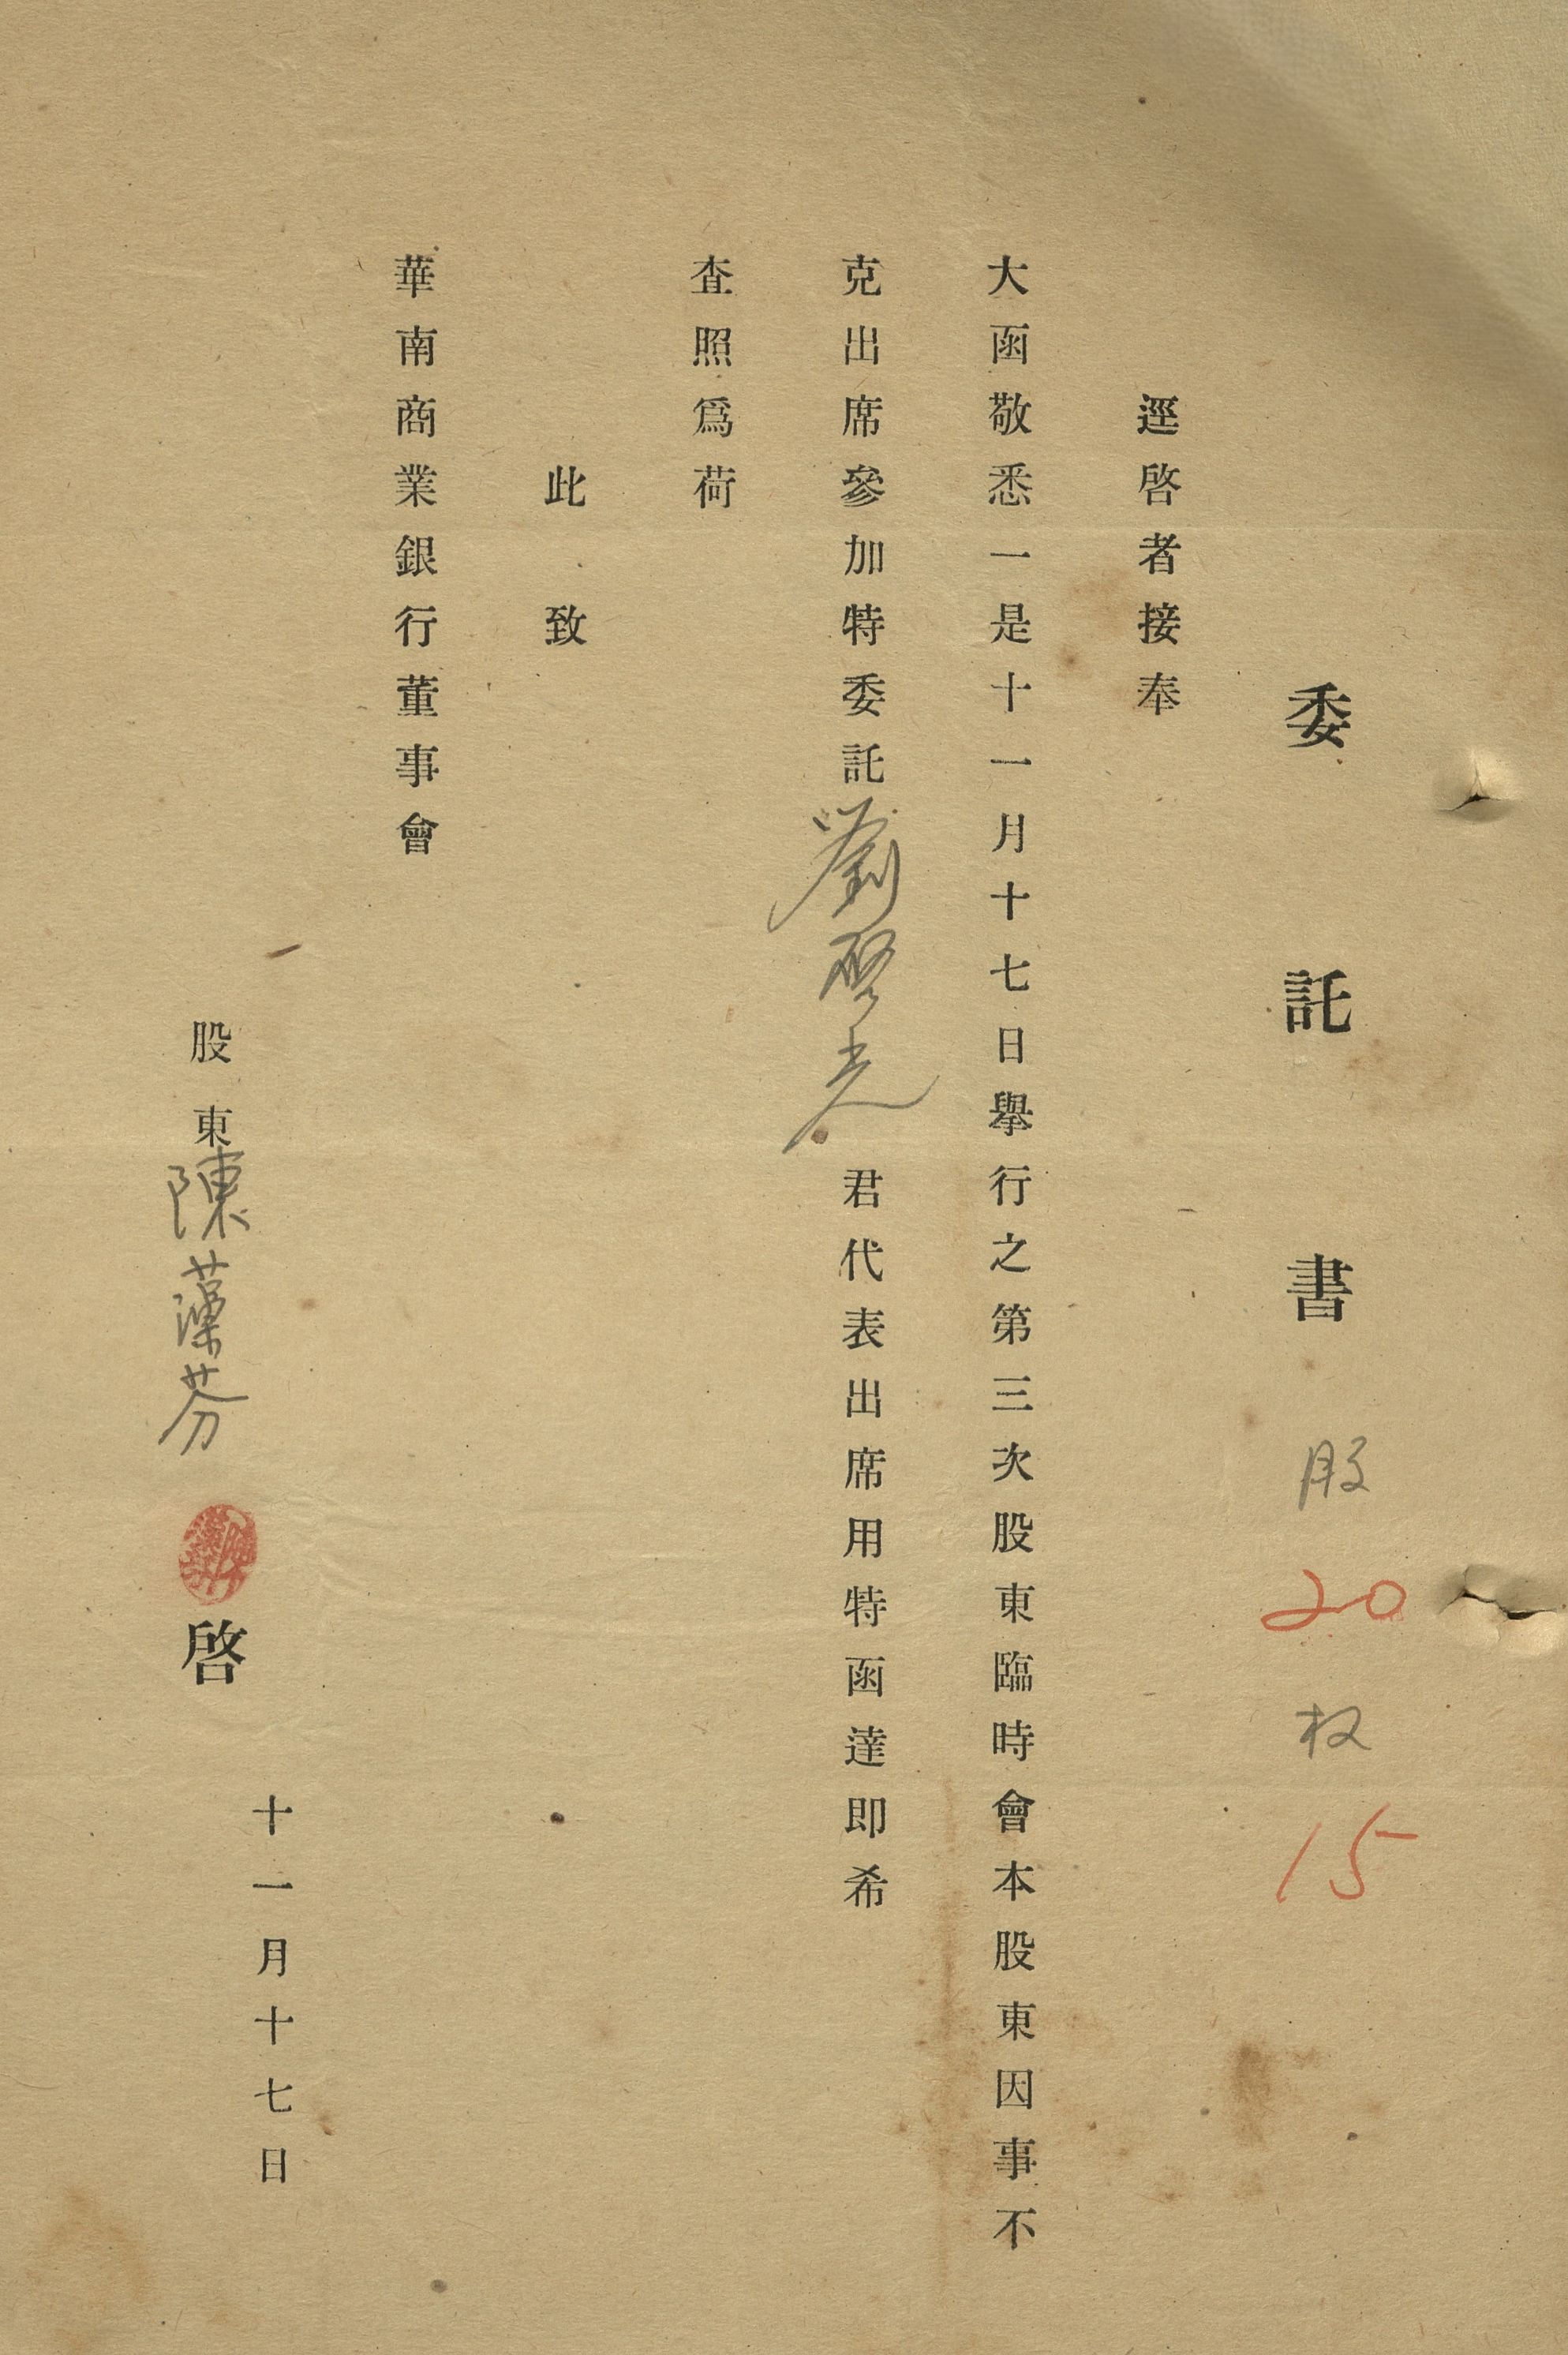 委託書 股 20 权 15
逕啓者接奉
大函敬悉一是十一月十七日舉行之第三次股東臨時會本股東因事不
克出席參加特委託劉啓光君代表出席用特函達即希
查照爲荷
此致
華南商業銀行董事會
十一月十七日
股東陳藻芬 啓